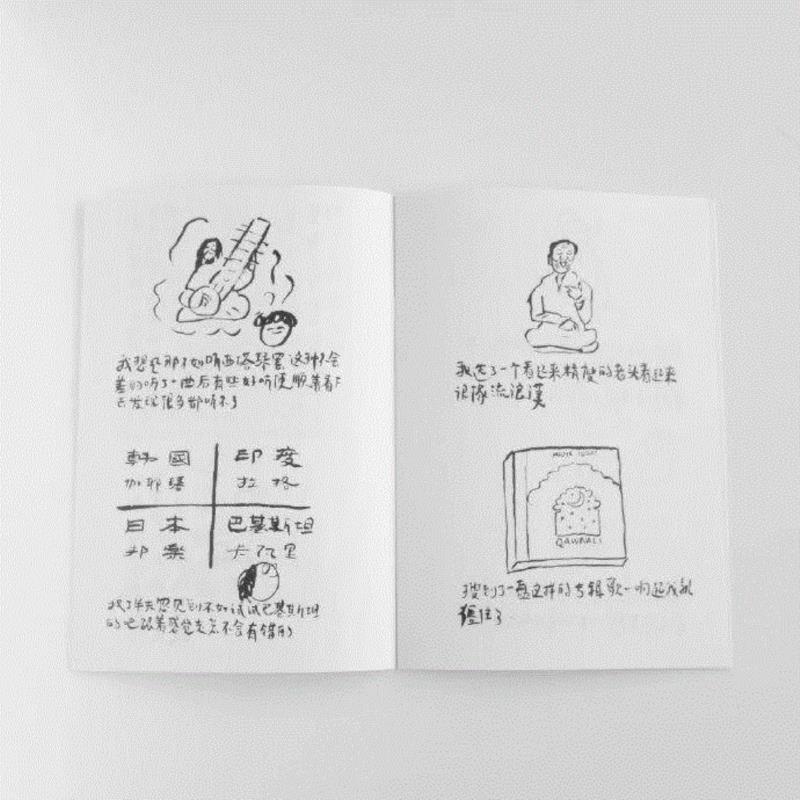 我想还那不如听西塔琴罢 这种不会
差的听了一曲后有些好听便顺着看下
去发现很多都听不了
韩國 印度
加耶琴 拉格
日本 巴基斯坦
邦樂 卡瓦里
找了半天忽见到不如试试巴基斯坦
的吧跟着感觉走怎不会有错的
我选了一个看起来精瘦的老头看起来
很像流浪漢
QAWWALI
搜到了一盘这样的专辑歌一响起我就
僵住了